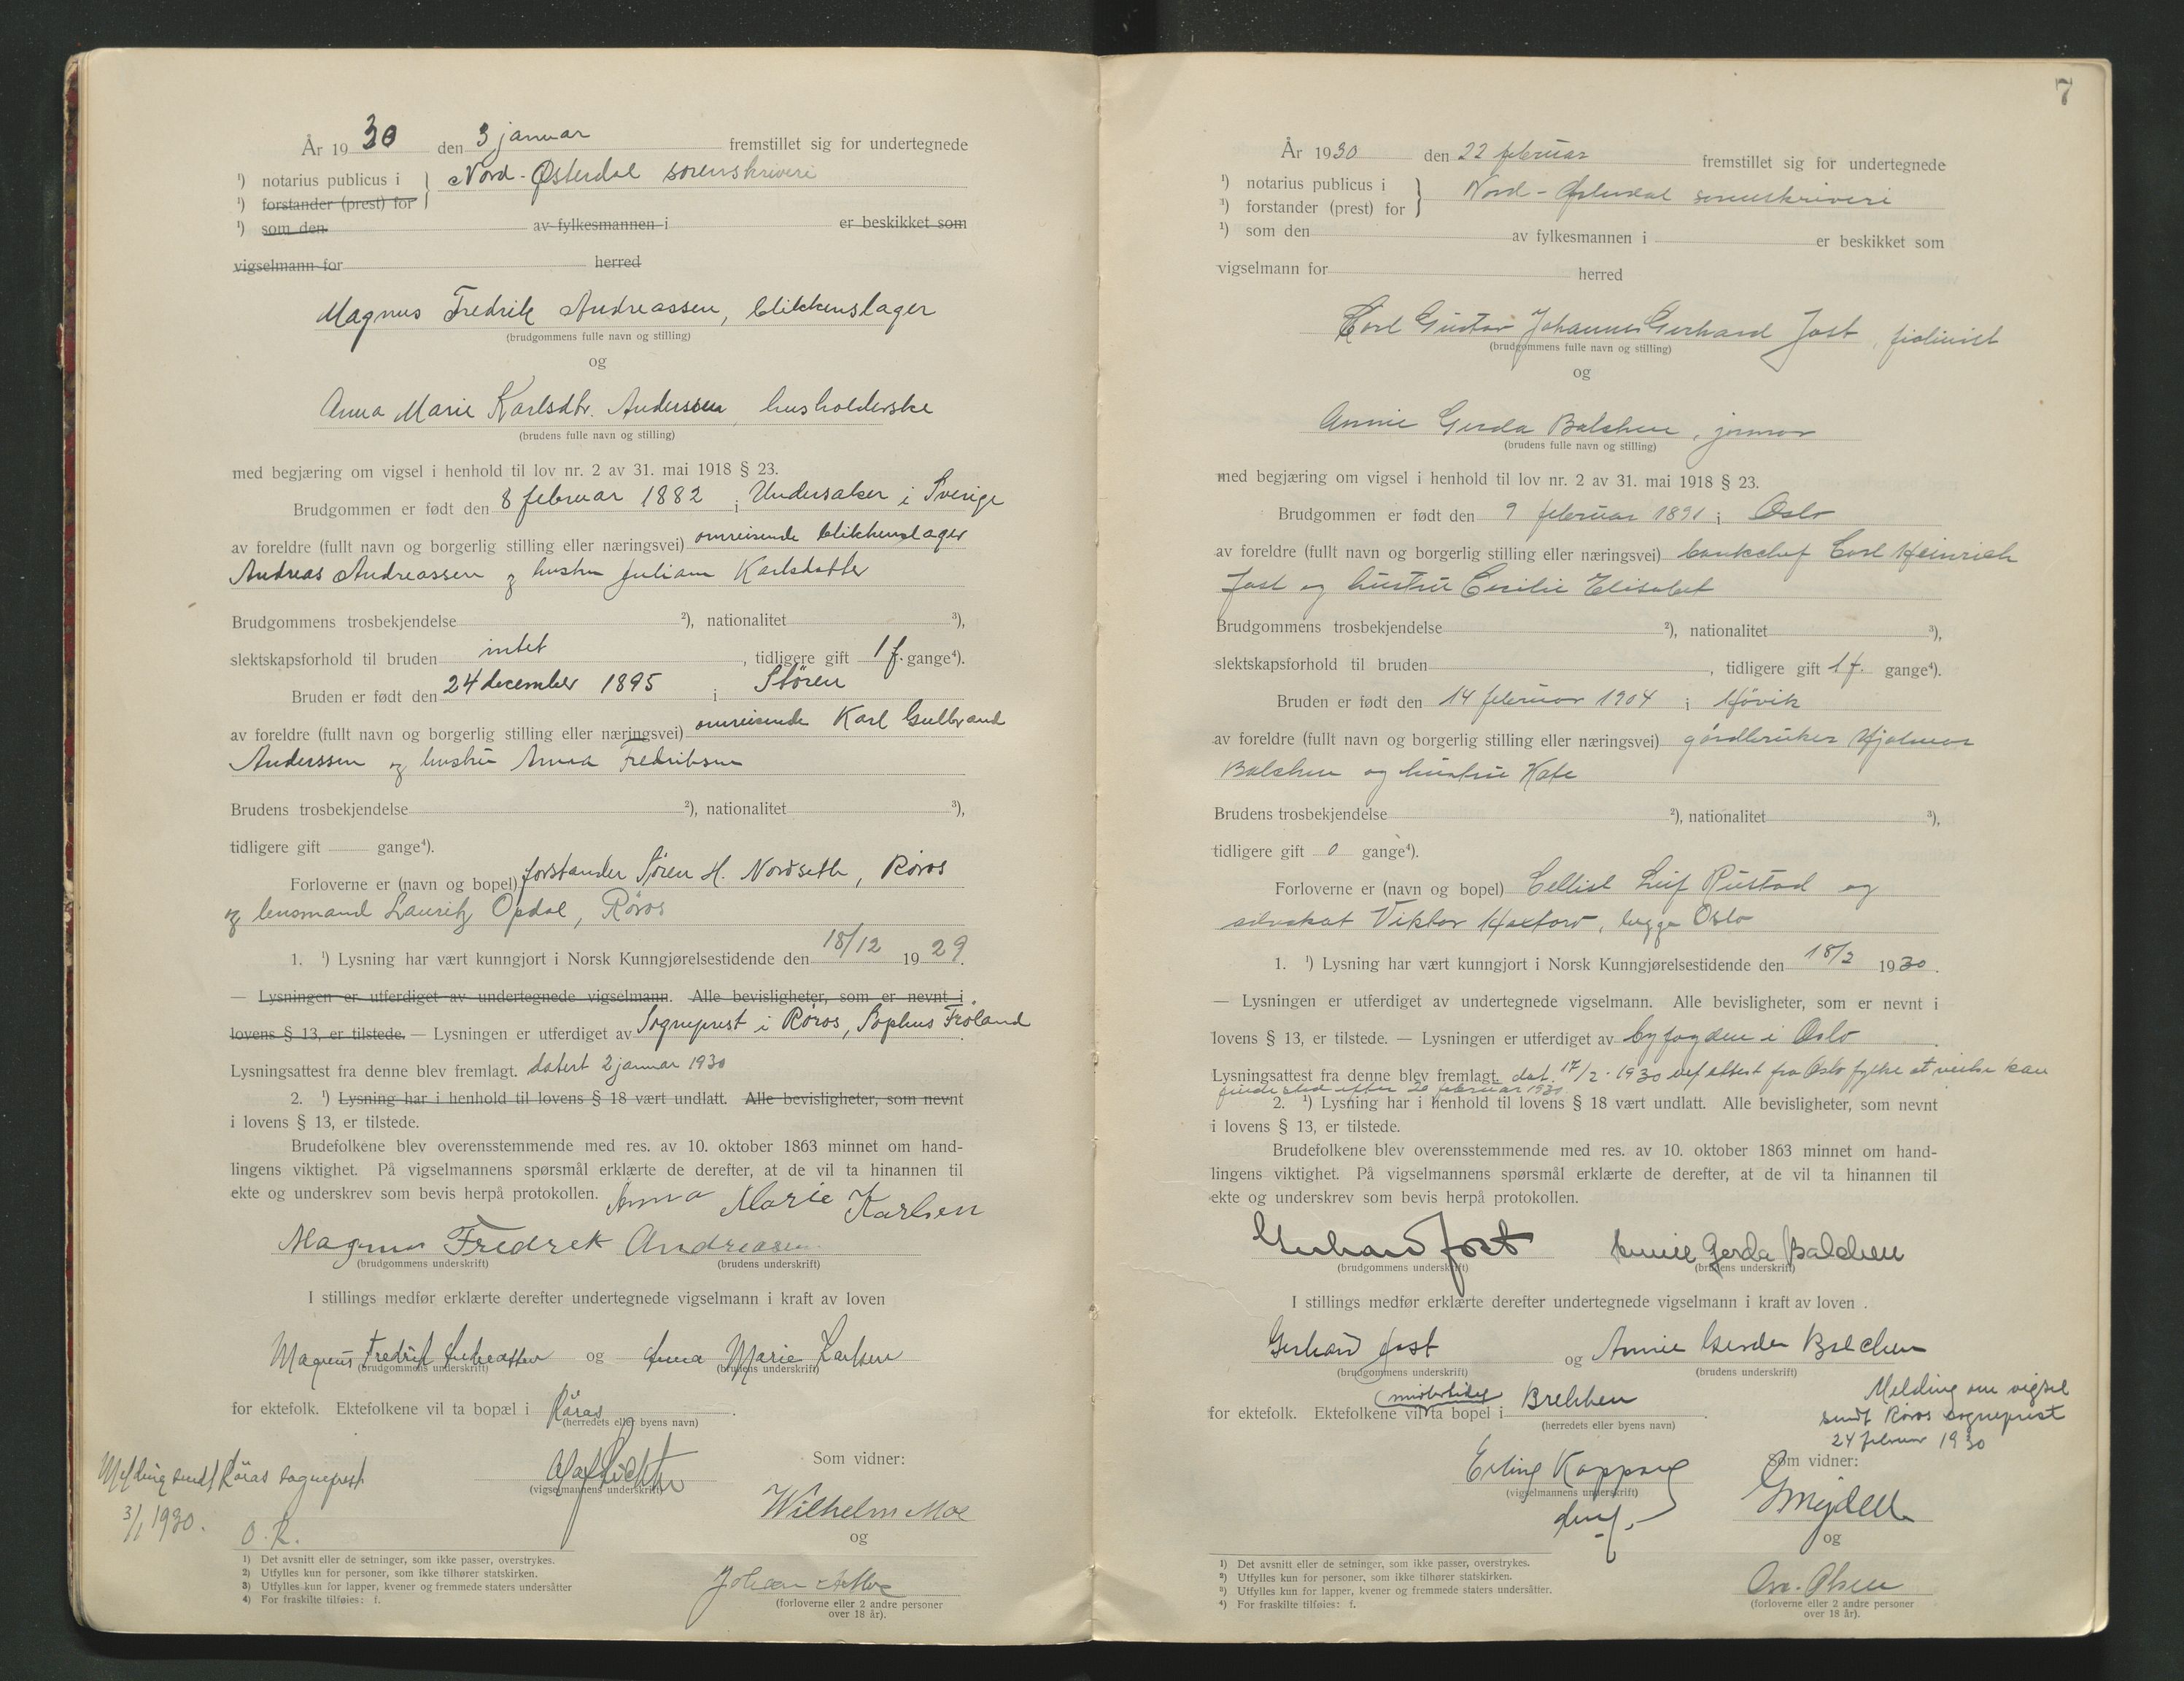 År 1930 den 3 januar fremstillet sig for undertegnede
¹) notarius publicus i } Nord-Østerdal sorenskriveri
¹) forstander (prest) for
¹) som den av fylkesmannen i er beskikket som
vigselmann for herred
Magnus Fredrik Andreassen, blikkenslager
(brudgommens fulle navn og stilling)
og
Anna Marie Karlsdtr. Anderssen, husholderske
(brudens fulle navn og stilling)
med begjæring om vigsel i henhold til lov nr. 2 av 31. mai 1918 § 23.
Brudgommen er født den 8 februar 1882 i Undersaker i Sverige
av foreldre (fullt navn og borgerlig stilling eller næringsvei) omreisende blikkenslager
Andreas Andreassen og hustru Juliane Karlsdatter
Brudgommens trosbekjendelse ²), nationalitet ³),
slektskapsforhold til bruden intet, tidligere gift 1 f. gange⁴).
Bruden er født den 24 december 1895 i Støren
av foreldre (fullt navn og borgerlig stilling eller næringsvei) omreisende Karl Gulbrand
Anderssen og hustru Anna Fredriksen
Brudens trosbekjendelse ²), nationalitet ³),
tidligere gift gange⁴).
Forloverne er (navn og bopel) forstander Sören H. Nordseth, Röros
og lensmand Lauritz Opdal, Røros
1. ¹) Lysning har vært kunngjort i Norsk Kunngjørelsestidende den 18/12 1929.
— Lysningen er utferdiget av undertegnede vigselmann. Alle bevisligheter, som er nevnt i
lovens § 13, er tilstede. — Lysningen er utferdiget av Sogneprest i Röros, Sophus Fröland
Lysningsattest fra denne blev fremlagt. datert 2 januar 1930
2. ¹) Lysning har i henhold til lovens § 18 vært undlatt. Alle bevisligheter, som nevnt
i lovens § 13, er tilstede.
Brudefolkene blev overensstemmende med res. av 10. oktober 1863 minnet om hand-
lingens viktighet. På vigselmannens spørsmål erklærte de derefter, at de vil ta hinannen til
ekte og underskrev som bevis herpå protokollen. Anna Marie Karlsen
Magnus Fredrek Andreasen
(brudgommens underskrift) (brudens underskrift)
I stillings medfør erklærte derefter undertegnede vigselmann i kraft av loven
Magnus Fredrik Andreassen og Anna Marie Karlsen
(brudgommens underskrift) (brudens underskrift)
for ektefolk. Ektefolkene vil ta bopæl i Röras
(herredets eller byens navn)
Melding sendt Röras sogneprest
3/1 1930.
O. R.
(vigselmannens underskrift)
Som vidner:
Wilhelm Moe
og
Johan
(forloverne eller 2 andre personer
over 18 år).
1) Det avsnitt eller de setninger, som ikke passer, overstrykes.
2) Utfylles kun for personer, som ikke tilhører statskirken.
3) Utfylles kun for lapper, kvener og fremmede staters undersåtter
4) For fraskilte tilføies: f.
7
År 1930 den 22 februar fremstillet sig for undertegnede
¹) notarius publicus i } Nord-Østerdal sorenskriveri
³) forstander (prest) for
¹) som den av fylkesmannen i er beskikket som
vigselmann for herred
Carl Gustav Johannes Gerhard Jost, fiolinist
(brudgommens fulle navn og stilling)
og
Annie Gerda Balchen,
(brudens fulle navn og stilling)
med begjæring om vigsel i henhold til lov nr. 2 av 31. mai 1918 § 23.
Brudgommen er født den 9 februar 1891 i Oslo
av foreldre (fullt navn og borgerlig stilling eller næringsvei) bankchef Carl Heinrich
Jost og hustru Cecilie Elisabet
Brudgommens trosbekjendelse ²), nationalitet ³),
slektskapsforhold til bruden , tidligere gift 1 f. gange⁴).
Bruden er født den 14 februar 1904 i Høvik
av foreldre (fullt navn og borgerlig stilling eller næringsvei) gårdbruker Hjalmar
Balchen og hustru Kate
Brudens trosbekjendelse ²), nationalitet ³),
tidligere gift 0 gange⁴).
Forloverne er (navn og bopel) Cellist Leif Rustad og
advokat Viktor, begge Oslo
1. ¹) Lysning har vært kunngjort i Norsk Kunngjørelsestidende den 18/2 1930.
— Lysningen er utferdiget av undertegnede vigselmann. Alle bevisligheter, som er nevnt i
lovens § 13, er tilstede. — Lysningen er utferdiget av byfogden i Oslo
Lysningsattest fra denne blev fremlagt. dat. 17/2 · 1930 attest fra Oslo fylke at vielse kan
finde sted efter 20 februar 1930
2. ¹) Lysning har i henhold til lovens § 18 vært undlatt. Alle bevisligheter, som nevnt
i lovens § 13, er tilstede.
Brudefolkene blev overensstemmende med res. av 10. oktober 1863 minnet om hand-
lingens viktighet. På vigselmannens spørsmål erklærte de derefter, at de vil ta hinannen til
ekte og underskrev som bevis herpå protokollen.
Gerhard Jost Annie Gerda Balchen
(brudgommens underskrift) (brudens underskrift)
I stillings medfør erklærte derefter undertegnede vigselmann i kraft av loven.
Gerhard Jost og Annie Gerda Balchen
(brudgommens underskrift) (brudens underskrift)
for ektefolk. Ektefolkene vil (midlertidig ta bopel i Brekken
(herredets eller byens navn)
Melding om vigsel
sendt Röros sogneprest
24 februar 1930
Erling Kopperg
(vigselmannens underskrift)
Som vidner:
og
Olsen
(forloverne eller 2 andre personer
over 18 år).
1) Det avsnitt eller de setninger, som ikke passer, overstrykes.
2) Utfylles kun for personer, som ikke tilhører statskirken.
3) Utfylles kun for lapper, kvener og fremmede staters undersåtter.
4) For fraskilte tilføies: f.